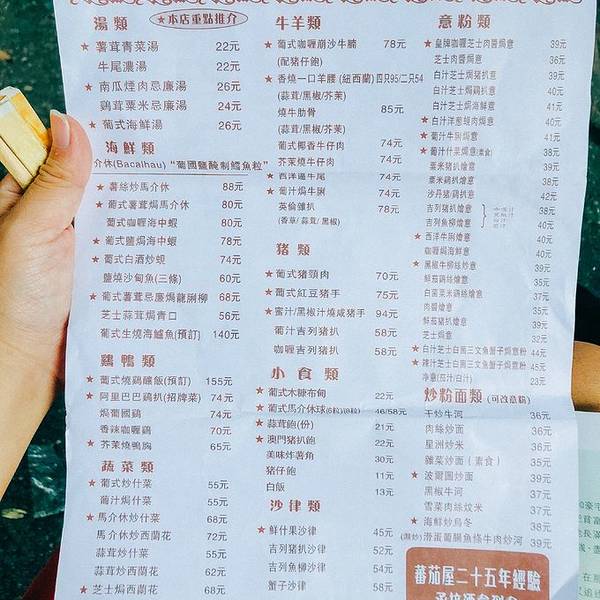 湯類 ★本店重點推介
★薯茸青菜湯 22元
牛尾濃湯 22元
★南瓜煙肉忌廉湯 26元
鷄茸粟米忌廉湯 24元
★葡式海鮮湯 26元
海鮮類
介休(Bacalhau) “葡國鹽醃制鱈魚粒”
★薯絲炒馬介休 88元
★葡式薯茸焗馬介休 80元
葡式咖喱海中蝦 80元
★葡式鹽焗海中蝦 78元
★葡式白酒炒蜆 74元
鹽燒沙甸魚(三條) 60元
★葡式薯茸忌廉焗龍脷柳 68元
芝士蒜茸焗青口 56元
葡式生燒海鱸魚(預訂) 140元
鷄鴨類
★葡式燒鷄釀飯(預訂) 155元
★阿里巴巴鷄扒(招牌菜) 74元
焗葡國鷄 74元
香辣咖喱鷄 70元
★芥茉燒鴨胸 65元
蔬菜類
★葡式炒什菜 55元
葡汁焗什菜 55元
★馬介休炒什菜 68元
馬介休炒西蘭花 72元
蒜茸炒什菜 55元
蒜茸炒西蘭花 62元
★芝士焗西蘭花 68元
牛羊類
★葡式咖喱崩沙牛腩 78元
(配豬仔飽)
★香燒一口羊腰 (紐西蘭)四只95/二只54
(蒜茸/黑椒/芥茉)
燒牛肋骨 85元
(蒜茸/黑椒/芥茉)
葡式椰香牛仔肉 74元
芥茉燒牛仔肉 74元
★西洋燴牛尾 74元
★葡汁焗牛脷 74元
英倫雜扒 78元
(香草/蒜茸/黑椒)
豬類
★葡式豬頸肉 70元
★葡式紅豆豬手 75元
★蜜汁/黑椒汁燒咸豬手 94元
葡汁吉列豬扒 58元
咖喱吉列豬扒 58元
小食類
★葡式木糠布甸 22元
★葡式馬介休球 46/58元
★蒜茸飽(份) 21元
★澳門豬扒飽 22元
美味炸薯角 30元
豬仔飽 11元
白飯 13元
沙律類
★鮮什果沙律 45元
吉列豬扒沙律 52元
吉列魚柳沙律 54元
蟹子沙律 58元
意粉類
★皇牌咖喱芝士肉醬焗意 39元
芝士肉醬焗意 36元
白汁芝士焗豬扒意 39元
白汁芝士焗鷄扒意 40元
白汁芝士焗海鮮意 41元
★白汁洋葱燒肉焗意 40元
★葡汁牛脷焗意 41元
★葡汁什菜焗意(素食) 38元
粟米豬扒燴意 39元
粟米鷄扒燴意 40元
沙丹豬/鷄扒意 42元
吉列豬扒燴意 38元
吉列魚柳燴意 40元
★西洋牛脷燴意 40元
咖喱焗海鮮意 40元
★黑椒牛柳絲炒意 39元
鮮茄鷄絲意 35元
白菌粟米鷄絲意 37元
肉醬意 35元
鮮茄豬扒意 39元
芝士焗意 32元
★白汁芝士白菌三文魚蟹子焗意粉 44元
★辣汁芝士白菌三文魚蟹子焗意粉 45元
净意(茄汁/白汁) 23元
炒粉麵類 (可改意粉)
干炒牛河 36元
肉絲炒面 36元
星洲炒米 36元
雜菜炒面 (素食) 35元
★波爾圖炒面 39元
黑椒牛河 37元
雪菜肉絲炆米 37元
★海鮮炒烏冬 38元
(濕炒)滑蛋蘭腸魚條牛肉炒河 39元
蕃茄屋二十五年經驗